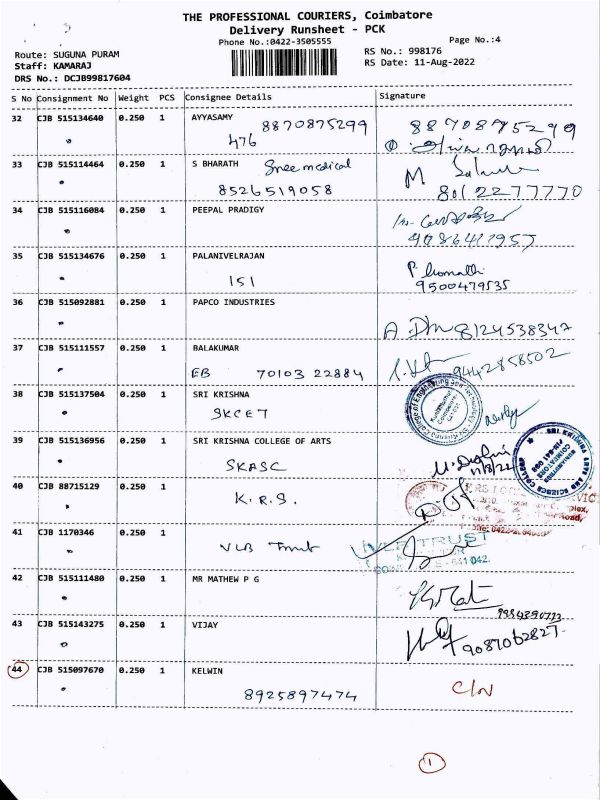 THE PROFESSIONAL COURIERS, Coimbatore
Delivery Runsheet - PCK
Phone No.:0422-3505555
Page No.:4
Route: SUGUNA PURAM
Staff: KAMARAJ
DRS No.: DCJB99817604
RS No.: 998176
RS Date: 11-Aug-2022
S No Consignment No Weight PCS Consignee Details Signature
32 CJB 515134640 0.250 1 AYYASAMY
476 8870875299 8870875299
33 CJB 515114464 0.250 1 S BHARATH Sree medical
8526519058 8012277770
34 CJB 515116084 0.250 1 PEEPAL PRADIGY
35 CJB 515134676 0.250 1 PALANIVELRAJAN
151 9500479535
36 CJB 515092881 0.250 1 PAPCO INDUSTRIES
8124538347
37 CJB 515111557 0.250 1 BALAKUMAR
EB 70103 22884 9442858502
38 CJB 515137504 0.250 1 SRI KRISHNA
SKCET
39 CJB 515136956 0.250 1 SRI KRISHNA COLLEGE OF ARTS
SKASC 11/8/22
40 CJB 88715129 0.250 1
K.R.S.
41 CJB 1170346 0.250 1
VLB Trust VLB TRUST
641 042.
42 CJB 515111480 0.250 1 MR MATHEW P G
43 CJB 515143275 0.250 1 VIJAY
9087062827
44 CJB 515097670 0.250 1 KELWIN
8925897474 C/N
1